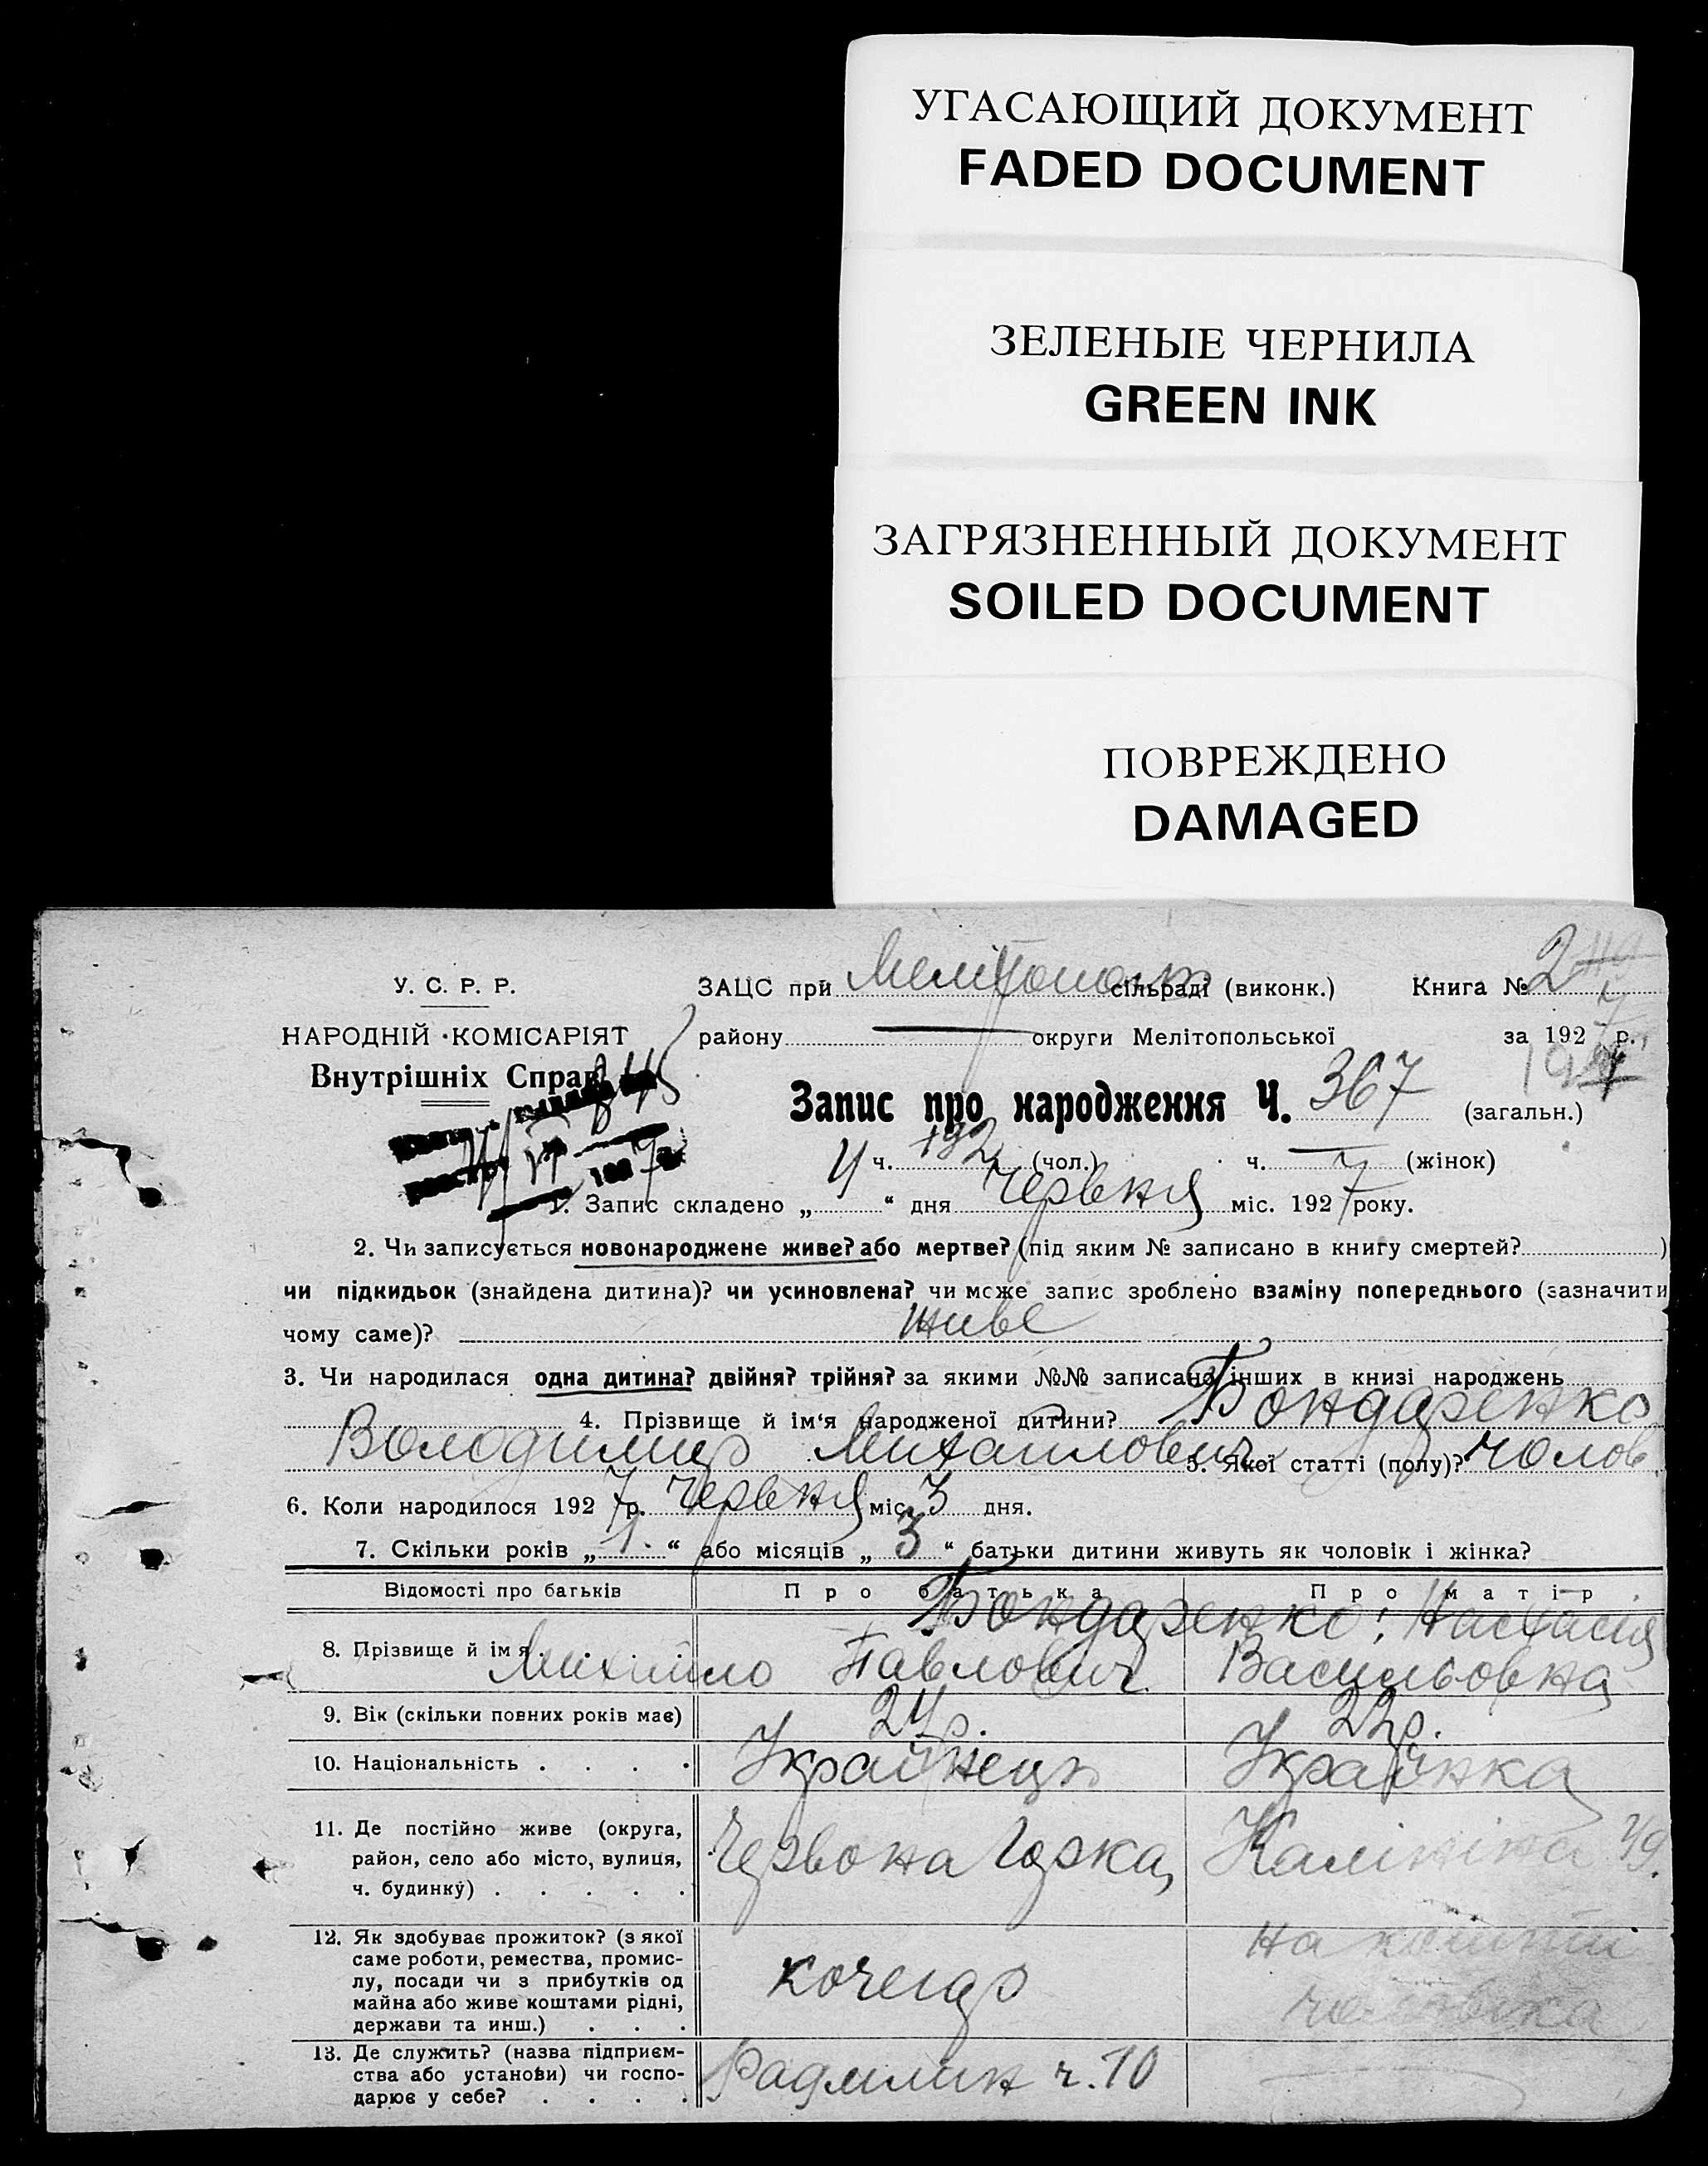 УГАСАЮЩИЙ ДОКУМЕНТ
FADED DOCUMENT
ЗЕЛЕНЫЕ ЧЕРНИЛА
GREEN INK
ЗАГРЯЗНЕННЫЙ ДОКУМЕНТ
SOILED DOCUMENT
ПОВРЕЖДЕНО
DAMAGED
У. С. Р. Р.
НАРОДНІЙ КОМІСАРІЯТ
Внутрішніх Справ
ЗАЦС при сільраді (виконк.) Книга № 2
району — округи Мелітопольської за 1927 р.
Запис про народження Ч. 367 (загальн.)
ч. 192 (чол.) ч. — (жінок)
1. Запис складено „ 4 “ дня Червня міс. 1927 року.
2. Чи записується новонароджене живе? або мертве? (під яким № записано в книгу смертей? )
чи підкидьок (знайдена дитина)? чи усиновлена? чи може запис зроблено взаміну попереднього (зазначити
чому саме)? живе
3. Чи народилася одна дитина? двійня? трійня? за якими №№ записано інших в книзі народжень
4. Прізвище й ім'я народженої дитини? Бондаренко
Володимир Михаилович 5. Якої статті (полу)? чолов
6. Коли народилося 1927 р. Червня міс. 3 дня.
7. Скільки років „ 1. “ або місяців „ 3 “ батьки дитини живуть як чоловік і жінка?
Відомості про батьків Про батька Про матір
Бондаренко; Настасія
8. Прізвище й ім я Михайло Павлович Васильовна
9. Вік (скільки повних років має) 24 р. 22 р.
10. Національність . . . . Українець Українка
11. Де постійно живе (округа,
район, село або місто, вулиця, Червона Горка, Калініна 49.
ч. будинку) . . . . .
12. Як здобуває прожиток? (з якої
саме роботи, ремества, промис-
лу, посади чи з прибутків од
майна або живе коштами рідні,
держави та инш.) . . .
кочегар
на кошти
чоловіка
13. Де служить? (назва підприєм-
ства або установи) чи госпо-
дарює у себе? . . . .
Радмлин ч. 10